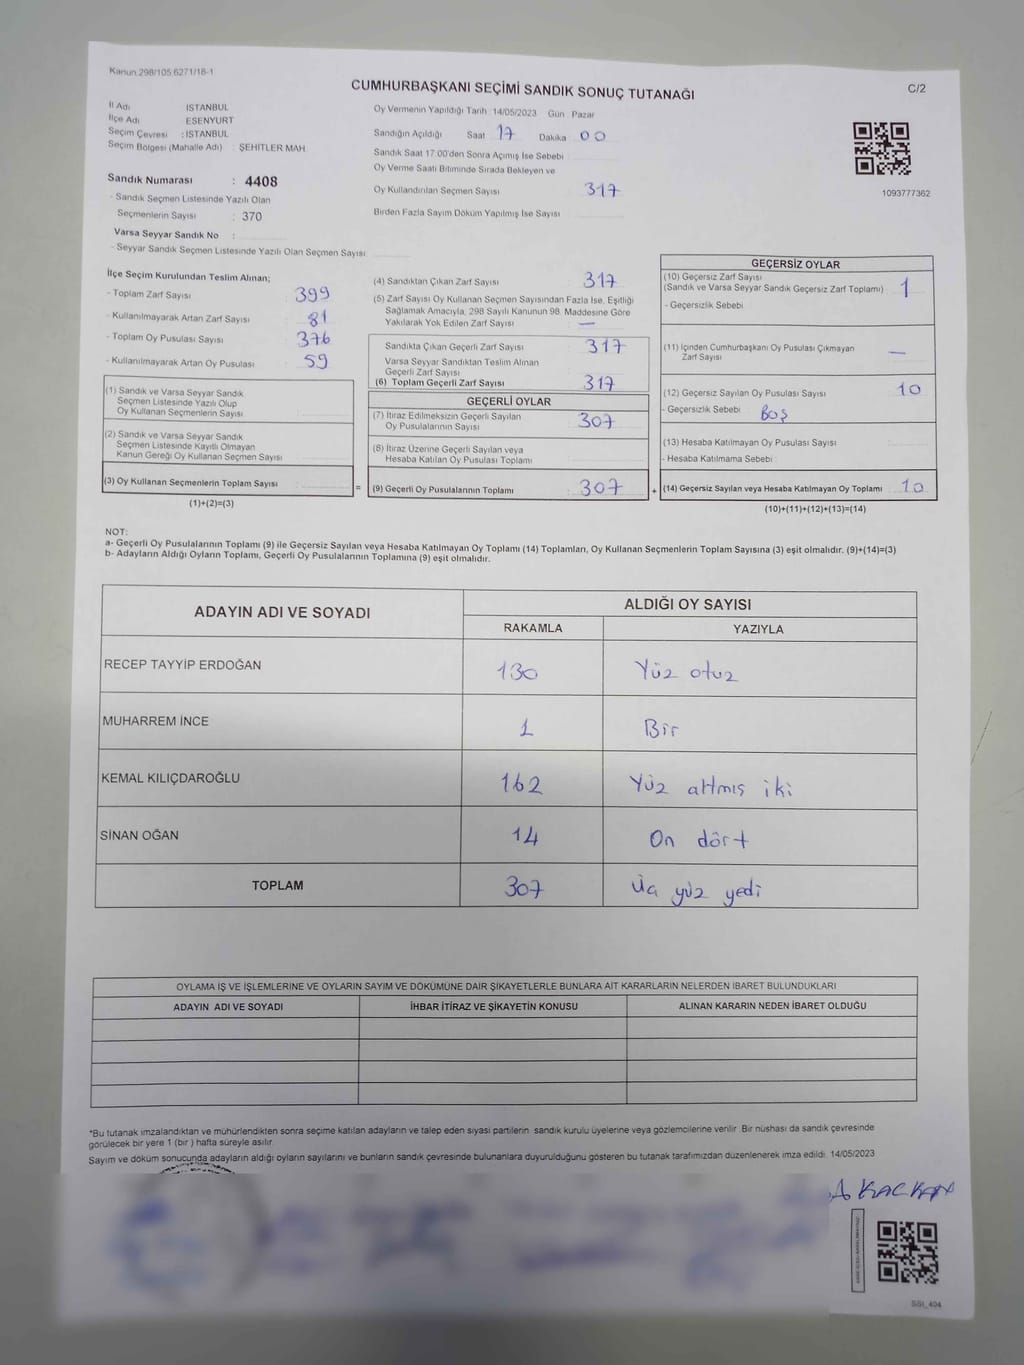 Kanun 298/105 6271/18-1
C/2
CUMHURBAŞKANI SEÇİMİ SANDIK SONUÇ TUTANAĞI
İl Adı İSTANBUL
İlçe Adı ESENYURT
Seçim Çevresi : İSTANBUL
Seçim Bölgesi (Mahalle Adı) : ŞEHİTLER MAH
Sandık Numarası : 4408
- Sandık Seçmen Listesinde Yazılı Olan
Seçmenlerin Sayısı : 370
Varsa Seyyar Sandık No :
- Seyyar Sandık Seçmen Listesinde Yazılı Olan Seçmen Sayısı
Oy Vermenin Yapıldığı Tarih 14/05/2023 Gün Pazar
Sandığın Açıldığı Saat 17 Dakika 00
Sandık Saat 17.00'den Sonra Açımış İse Sebebi
Oy Verme Saati Bitiminde Sırada Bekleyen ve
Oy Kullandırılan Seçmen Sayısı 317
Birden Fazla Sayım Döküm Yapılmış İse Sayısı
1093777362
İlçe Seçim Kurulundan Teslim Alınan;
- Toplam Zarf Sayısı 399
- Kullanılmayarak Artan Zarf Sayısı 81
- Toplam Oy Pusulası Sayısı 376
- Kullanılmayarak Artan Oy Pusulası 59
(1) Sandık ve Varsa Seyyar Sandık
Seçmen Listesinde Yazılı Olup
Oy Kullanan Seçmenlerin Sayısı
(2) Sandık ve Varsa Seyyar Sandık
Seçmen Listesinde Kayıtlı Olmayan
Kanun Gereği Oy Kullanan Seçmen Sayısı
(3) Oy Kullanan Seçmenlerin Toplam Sayısı
(1)+(2)=(3)
=
(4) Sandıktan Çıkan Zarf Sayısı 317
(5) Zarf Sayısı Oy Kullanan Seçmen Sayısından Fazla İse, Eşitliği
Sağlamak Amacıyla, 298 Sayılı Kanunun 98. Maddesine Göre
Yakılarak Yok Edilen Zarf Sayısı —
Sandıkta Çıkan Geçerli Zarf Sayısı 317
Varsa Seyyar Sandıktan Teslim Alınan
Geçerli Zarf Sayısı
(6) Toplam Geçerli Zarf Sayısı 317
GEÇERLİ OYLAR
(7) İtiraz Edilmeksizin Geçerli Sayılan
Oy Pusulalarının Sayısı 307
(8) İtiraz Üzerine Geçerli Sayılan veya
Hesaba Katılan Oy Pusulası Toplamı
(9) Geçerli Oy Pusulalarının Toplamı 307
+
GEÇERSİZ OYLAR
(10) Geçersiz Zarf Sayısı
(Sandık ve Varsa Seyyar Sandık Geçersiz Zarf Toplamı) 1
- Geçersizlik Sebebi
(11) İçinden Cumhurbaşkanı Oy Pusulası Çıkmayan
Zarf Sayısı —
(12) Geçersiz Sayılan Oy Pusulası Sayısı 10
- Geçersizlik Sebebi BOŞ
(13) Hesaba Katılmayan Oy Pusulası Sayısı
- Hesaba Katılmama Sebebi
(14) Geçersiz Sayılan veya Hesaba Katılmayan Oy Toplamı 10
(10)+(11)+(12)+(13)=(14)
NOT:
a- Geçerli Oy Pusulalarının Toplamı (9) ile Geçersiz Sayılan veya Hesaba Katılmayan Oy Toplamı (14) Toplamları, Oy Kullanan Seçmenlerin Toplam Sayısına (3) eşit olmalıdır. (9)+(14)=(3)
b- Adayların Aldığı Oyların Toplamı, Geçerli Oy Pusulalarının Toplamına (9) eşit olmalıdır.
ADAYIN ADI VE SOYADI ALDIĞI OY SAYISI
RAKAMLA YAZIYLA
RECEP TAYYİP ERDOĞAN 130 Yüz otuz
MUHARREM İNCE 1 Bir
KEMAL KILIÇDAROĞLU 162 Yüz altmış iki
SİNAN OĞAN 14 On dört
TOPLAM 307 Üç yüz yedi
OYLAMA İŞ VE İŞLEMLERİNE VE OYLARIN SAYIM VE DÖKÜMÜNE DAİR ŞİKAYETLERLE BUNLARA AİT KARARLARIN NELERDEN İBARET BULUNDUKLARI
ADAYIN ADI VE SOYADI İHBAR İTİRAZ VE ŞİKAYETİN KONUSU ALINAN KARARIN NEDEN İBARET OLDUĞU
*Bu tutanak imzalandıktan ve mühürlendikten sonra seçime katılan adayların ve talep eden siyasi partilerin sandık kurulu üyelerine veya gözlemcilerine verilir. Bir nüshası da sandık çevresinde
görülecek bir yere 1 (bir ) hafta süreyle asılır.
Sayım ve döküm sonucunda adayların aldığı oyların sayılarını ve bunların sandık çevresinde bulunanlara duyurulduğunu gösteren bu tutanak tarafımızdan düzenlenerek imza edildi. 14/05/2023